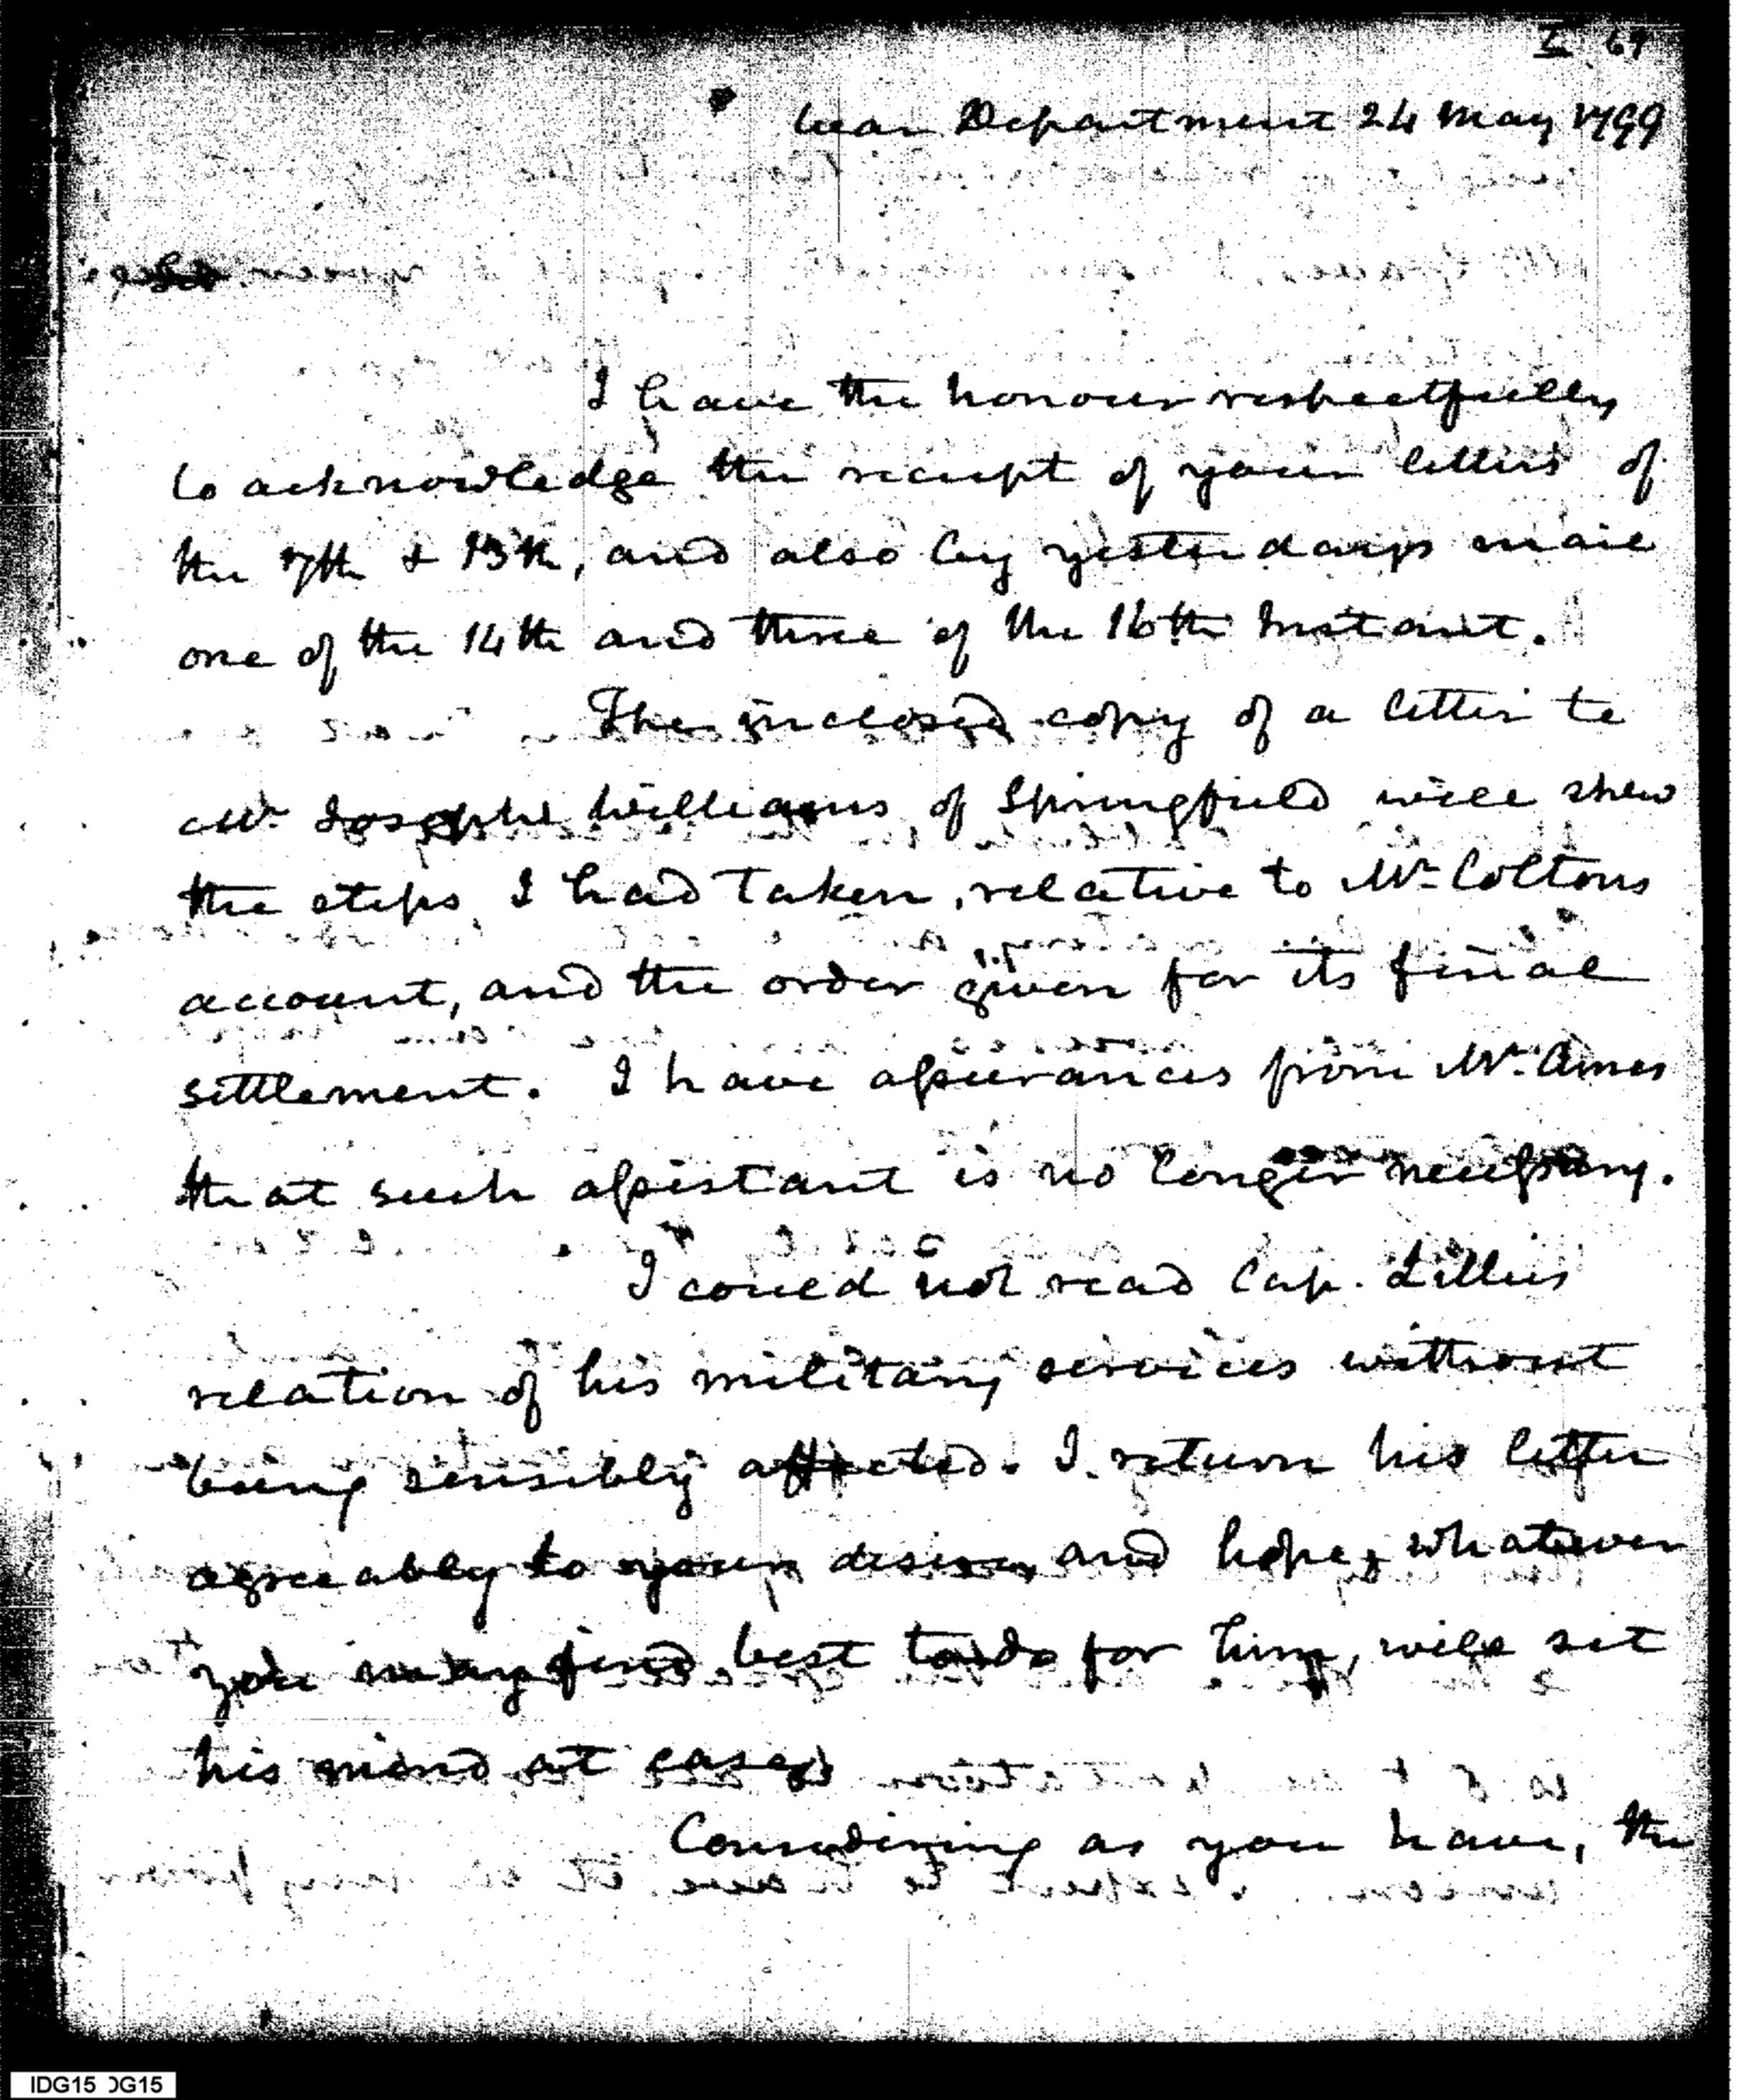 I 69
War Department 24 May 1799
I have the honour respectfully
to acknowledge the receipt of your letters of
the 7th & 13th, and also by yesterdays mail
one of the 14th and three of the 16th Instant.
The inclosed copy of a letter to
Mr. Joseph Williams of Springfield will shew
the steps I had taken, relative to Mr. Coltons
account, and the order given for its final
settlement. I have assurances from Mr. Ames
that such assistant is no longer necessary.
I could not read Cap. Lillies
relation of his military services without
being sensibly affected. I return his letter
agreeably to your desire, and hope, whatever
you may find best to do for him, will set
his mind at ease.
Considering as you have, the
IDG15 IDG15